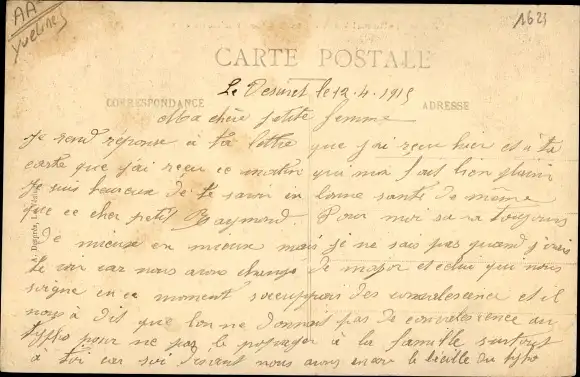 AA
Yvelines
1623
CARTE POSTALE
Le Vesinet le 12.4.1915
CORRESPONDANCE
ADRESSE
Ma chère petite femme
Je rend réponse à ta lettre que j'ai reçu hier et à ta
carte que j'ai reçu ce matin qui m'a fait bien plaisir
Je suis heureux de te savoir en bonne santé de même
que ce cher petit Raymond. Pour moi sa va toujours
de mieux en mieux mais je ne sais pas quand j'irais
te voir car nous avons changé de major et celui qui nous
soigne en ce moment s'occupait des convalescence et il
nous à dit que l'on ne donnait pas de convalescence au
typho pour ne pas le propager à la famille surtout
à toi car soi disant nous avons encore le bacille du typho
A. Desprès, Le Vésinet